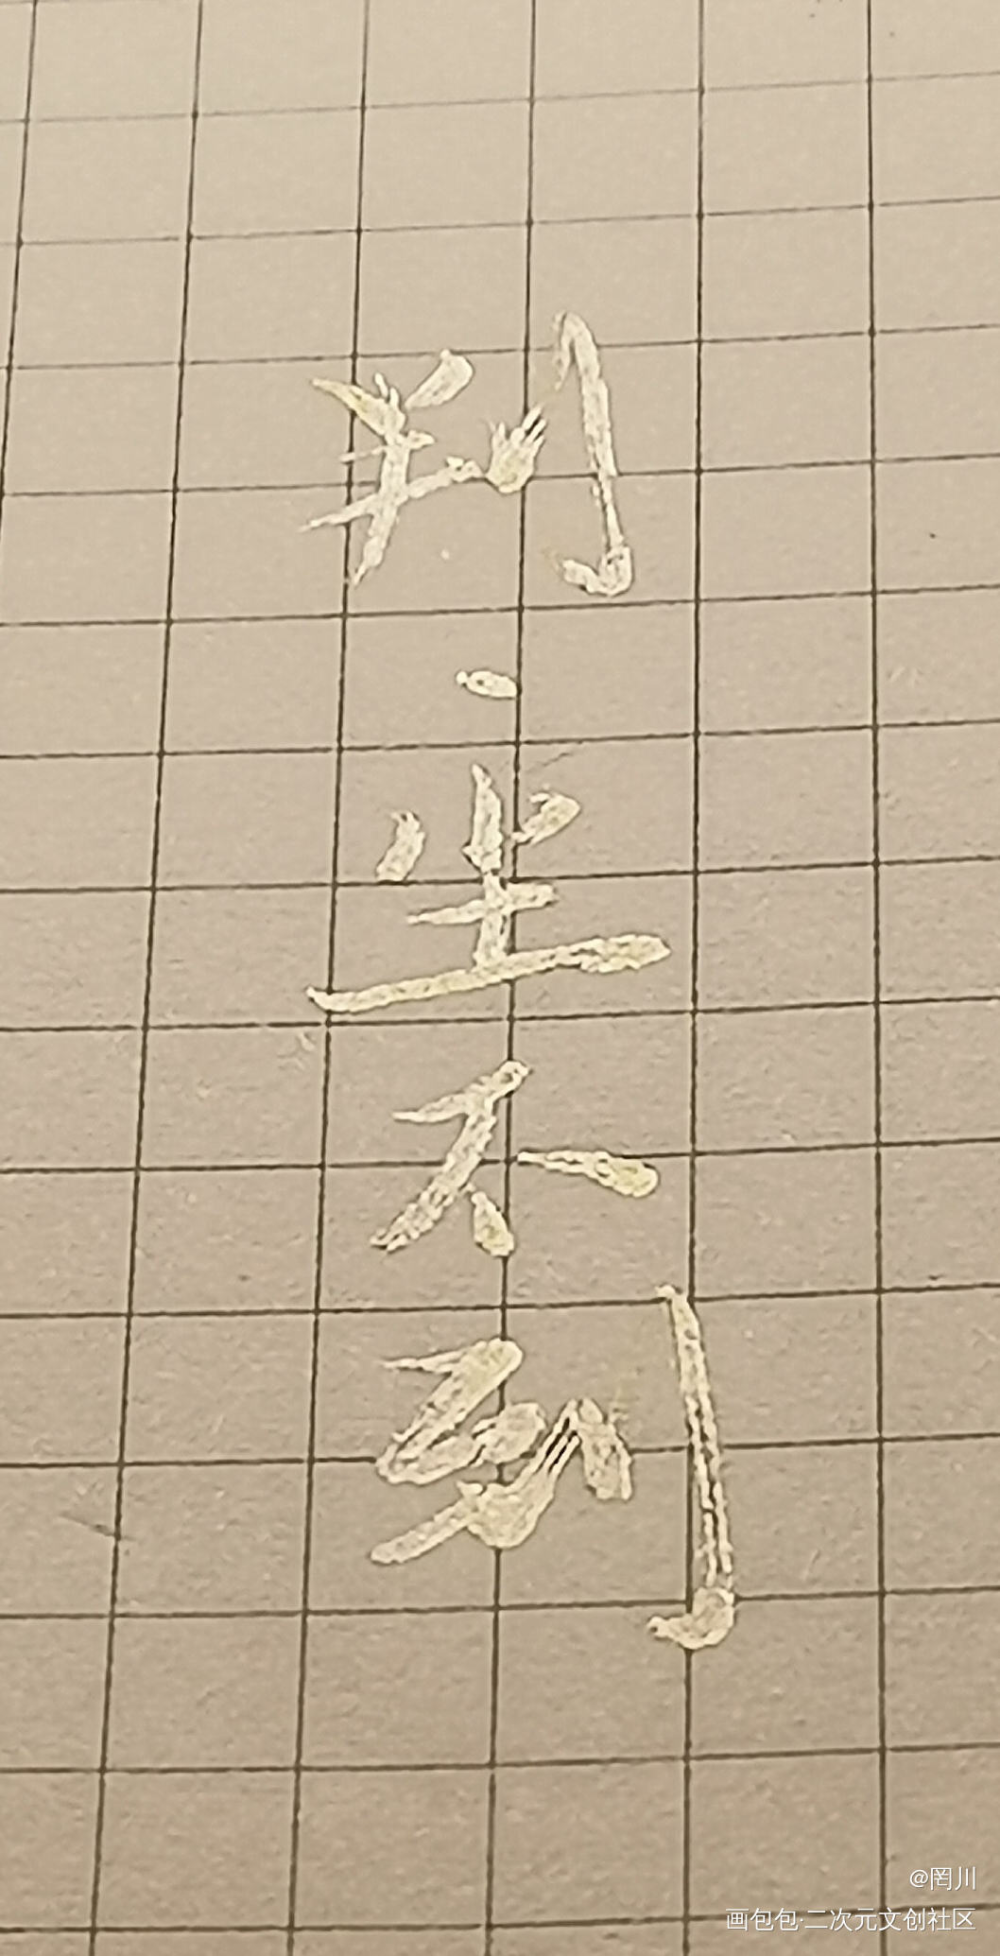 判、坐不到
@罔川
画包包·二次元文创社区